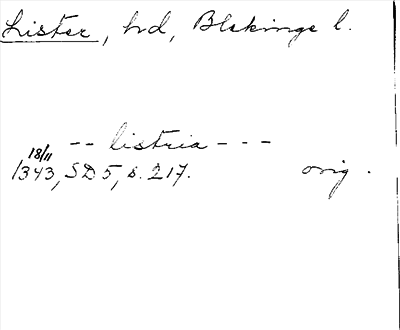 Lister, hd, Blekinge l.
-- listria - - -
18/11
1343, SD 5, s. 217. orig.